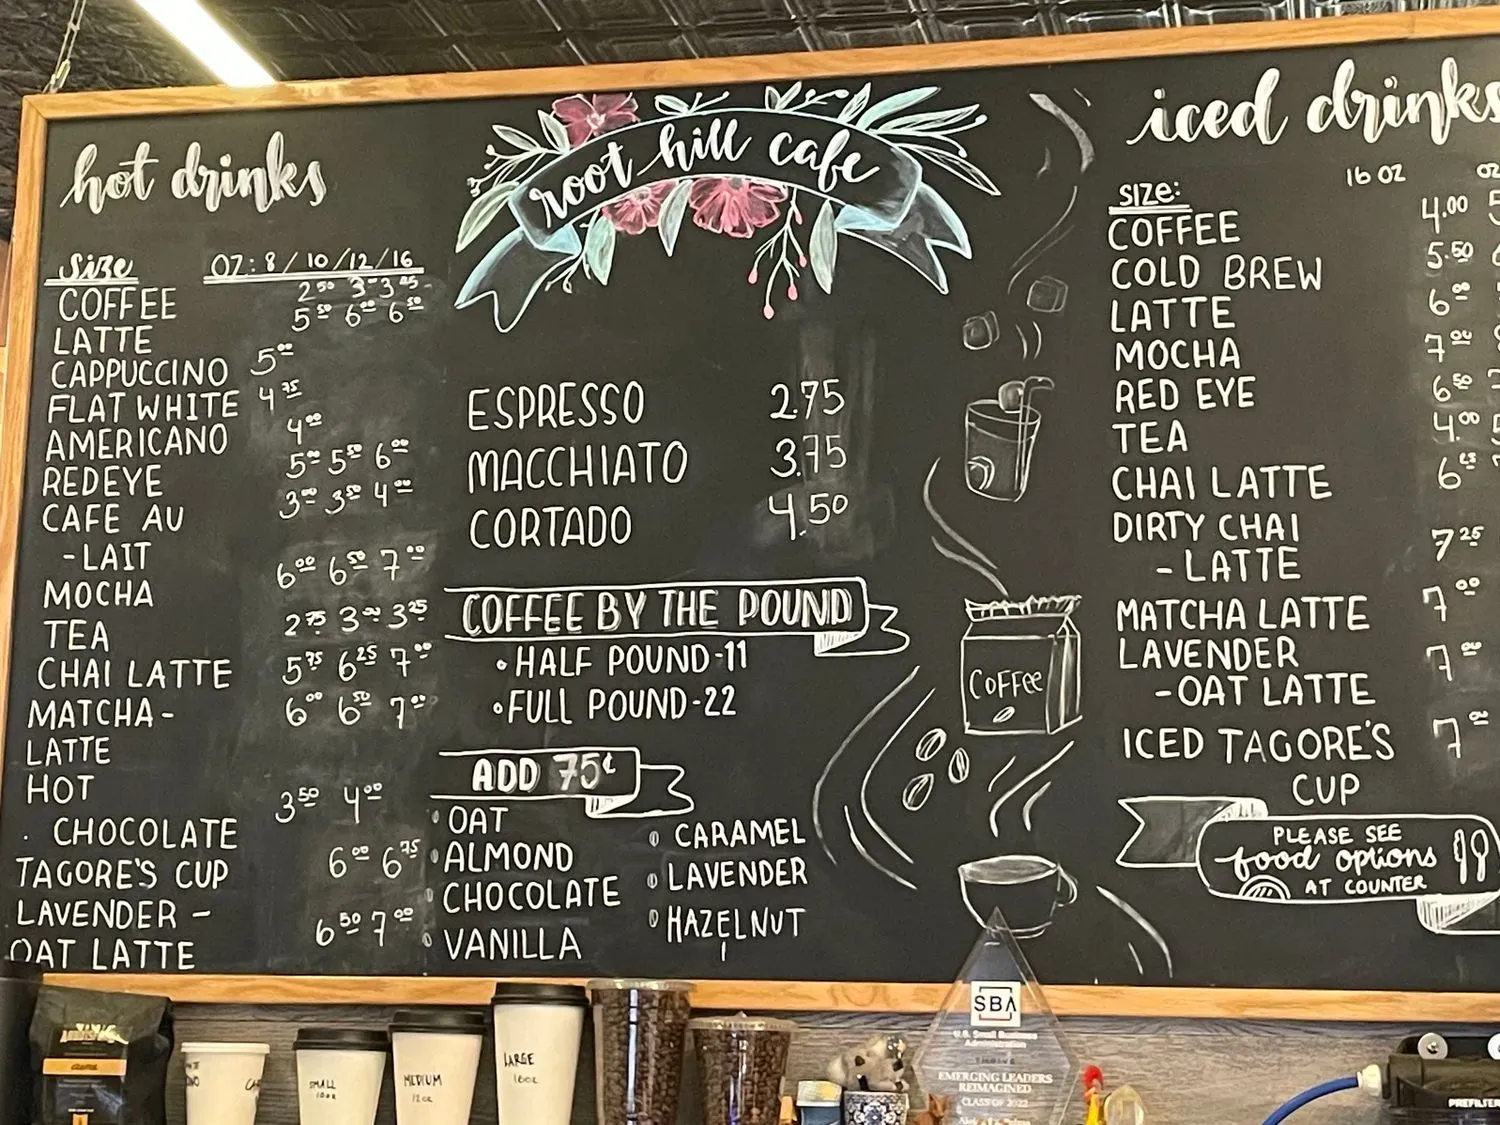 root hill cafe
hot drinks
Size OZ: 8/10/12/16
COFFEE 2.50 3.00 3.25
LATTE 5.50 6.00 6.50
CAPPUCCINO 5.00
FLAT WHITE 4.75
AMERICANO 4.00
REDEYE 5.00 5.50 6.00
CAFE AU 3.00 3.50 4.00
-LAIT
MOCHA 6.00 6.50 7.00
TEA 2.75 3.00 3.25
CHAI LATTE 5.75 6.25 7.00
MATCHA- 6.00 6.50 7.00
LATTE
HOT 3.50 4.00
CHOCOLATE
TAGORE'S CUP 6.00 6.75
LAVENDER -
OAT LATTE 6.50 7.00
ESPRESSO 2.75
MACCHIATO 3.75
CORTADO 4.50
COFFEE BY THE POUND
•HALF POUND-11
•FULL POUND-22
ADD 75¢
OAT
ALMOND
CHOCOLATE
VANILLA
CARAMEL
LAVENDER
HAZELNUT
Coffee
iced drinks
SIZE: 16 OZ OZ
COFFEE 4.00
COLD BREW 5.50
LATTE 6.00
MOCHA 7.00
RED EYE 6.50
TEA 4.00
CHAI LATTE 6.25
DIRTY CHAI
- LATTE 7.25
MATCHA LATTE 7.00
LAVENDER
-OAT LATTE 7.00
ICED TAGORE'S 7.00
CUP
PLEASE SEE
food options
AT COUNTER
SMALL
10oz
MEDIUM
12oz
LARGE
16oz
SBA
U.S. Small Business
Administration
EMERGING LEADERS
REIMAGINED
CLASS OF 2022
PREFILTER